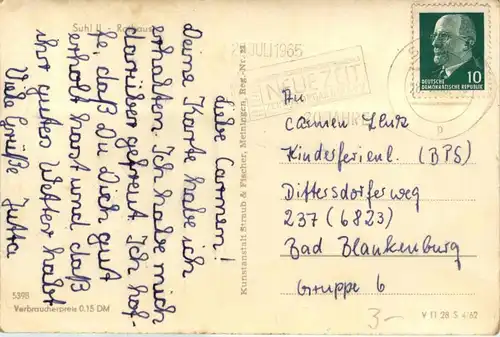 Suhl II - Rathaus
Liebe Carmen!
Deine Karte habe ich
erhalten. Ich habe mich
darüber gefreut. Ich hof-
fe, daß Du Dich gut
erholt hast und daß
ihr gutes Wetter habt
Viele Grüße Jutta
5398
Verbraucherpreis 0.15 DM
Kunstanstalt Straub & Fischer, Meiningen, Reg.-Nr.
JULI 1965
NEUE ZEIT
20 JAHRE
10
DEUTSCHE
DEMOKRATISCHE REPUBLIK
An
Carmen
Kinderferienl. (BPS)
Dittersdorferweg
237 (6823)
Bad Blankenburg
Gruppe 6
3-
V 11 28 S 4/62